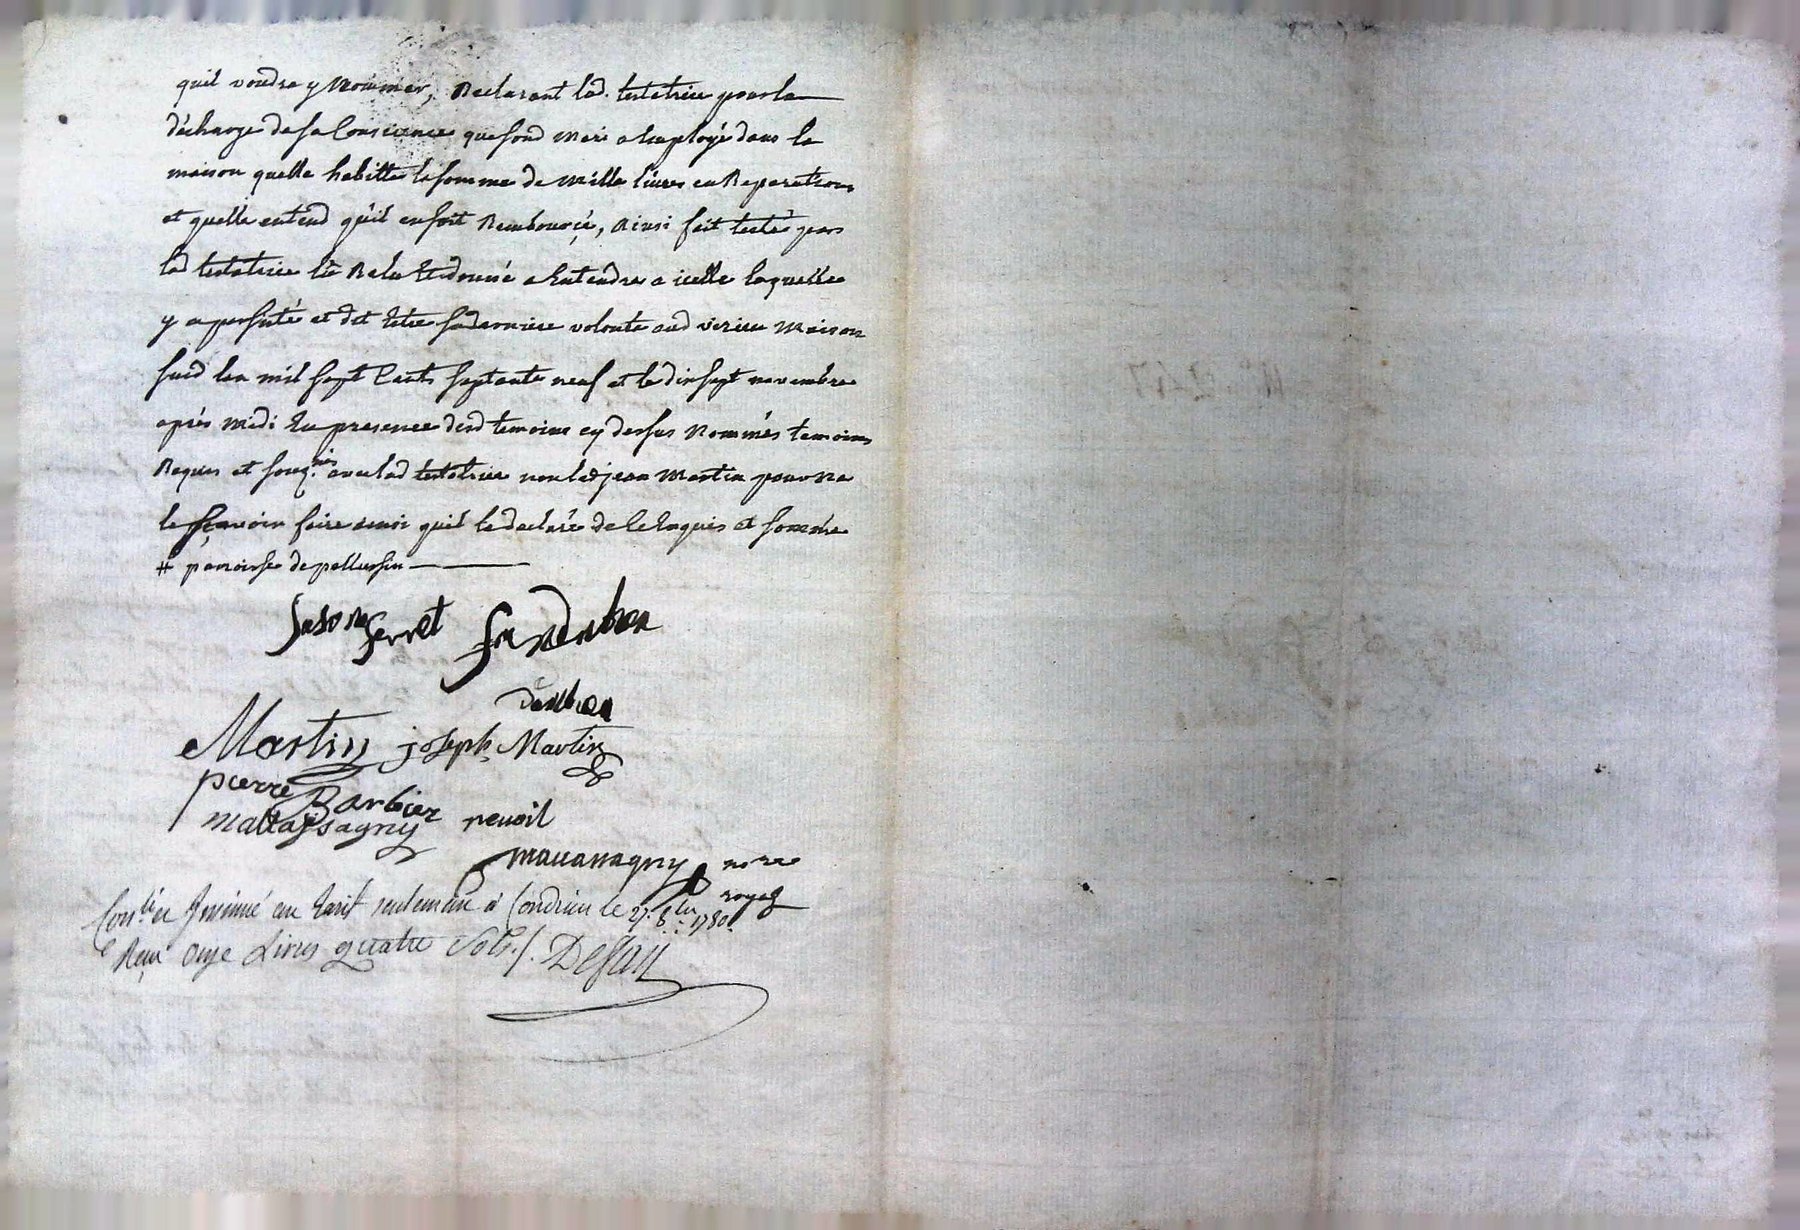 quil voudra y Nommer, Declarant lad. testatrice pour la
décharge de sa Conscience que sond mari a Employé dans la
maison quelle habitte la somme de mille livres en Reparations
et quelle entend qu'il en soit Remboursé, ainsi fait testé par
lad testatrice lû Relu Et donné a Entendre a icelle laquelle
y a persisté et dit Etre sa derniere volonté aud virieu maison
susd l'an mil sept Cents septante neuf et le dix sept novembre
après midi En presence desd temoins cy dessus Nommés temoins
Requis et souq.nés avec lad testatrice non led jean Martin pour ne
le sçavoir faire ainsi quil la declaré de ce Enquis et sommé
# paroisse de pellussin
ferret
Martin joseph Martin
pierre Barbier
mattassagny
mauassagny no re
royal
Con.lé et Insinué au tarif seulement à Condrieu le 27. 8.bre 1780.
Reçu onze Livres quatre sols./.